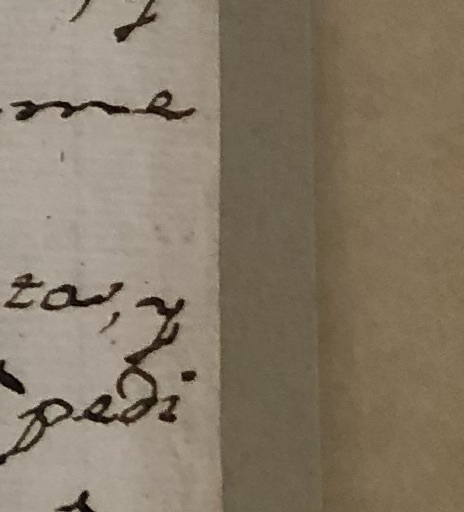 , y
me
ta, y
pedi